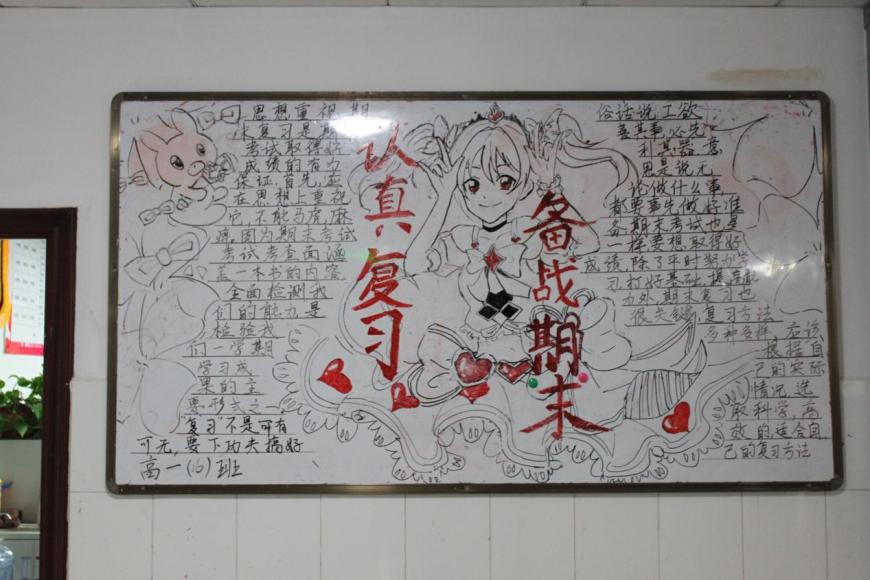 思想重视期
末复习是期
考试取得好
成绩的有力
保证。首先，应
在思想上重视
它，不能马虎，麻
痹。因为期末考试
考试考查面涵
盖一本书的内容
全面检测我
们的能力是
检验我
们一学期
学习成
果的主
要形式之一。
"复习"不是可有
可无，要下功夫搞好
高一(16)班
认真复习
备战期末
俗话说工欲
善其事必先
利其器意
思是说无
论做什么事
都要事先做好准
备期末考试也是
一样要想取得好
成绩，除了平时努力学
习打好基础，提高能
力外，期末复习也
很关键，复习方法
多种多样，应该
根据自
己的实际
情况，选
取科学，高
效的适合自
己的复习方法